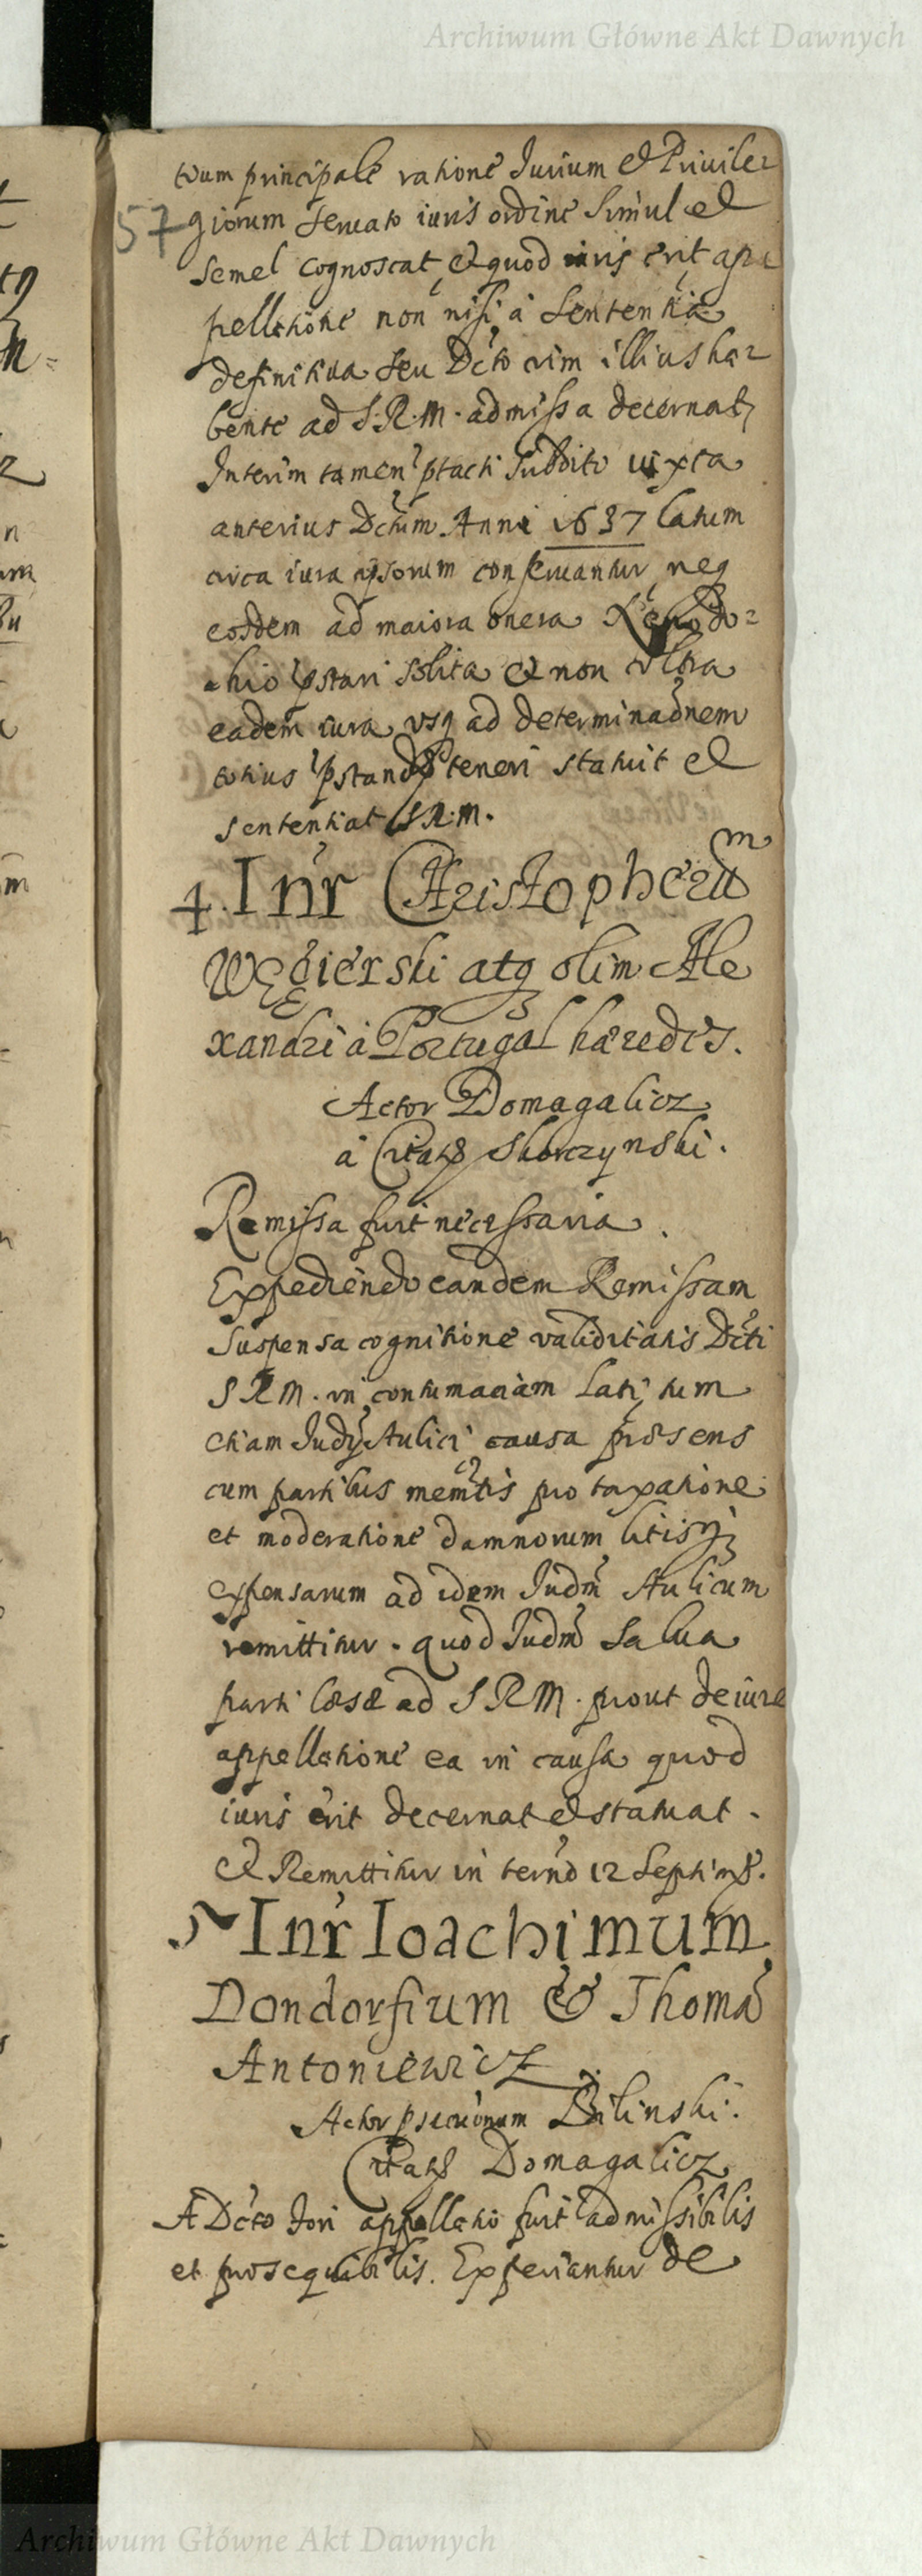 Archiwum Główne Akt Dawnych
tum principale ratione Jurium et Privile=
57 giorum servato iuris ordine simul et
semel cognoscat, et quod iuris erit appe
pellatione non nisi à sententia
definitiua seu Dcto vim illius ha=
bente ad S.R.M. admissa decernat,
Interim tamen ptacti subditi iuxta
anterius Dctum Anni 1637 latum
circa iura ipsorum conseruantur, neq
eosdem ad maiora onera
pstari solita et non vltra
eadem iura vsq ad determinaōnem
pstand teneri statuit et
sententiat S.R.M.
4. Inr Christopherum
Węgierski atq olim Ale
xandri à Portugal hæredes.
Actor Domagalicz
à Citatis Skorczynski.
Remissa fuit necessaria.
Expediendo eandem Remissam
suspensa cognitione validitatis Dcti
S R M. in contumaciam lati, tum
etiam Judij Aulici causa præsens
cum partibus memtis pro taxatione
et moderatione damnorum litisq
expensarum ad idem Judm Aulicum
remittitur. quod Judm salua
parti læsæ ad S R M. prout de iure
appellatione ea in causa quod
iuris erit decernat et statuat.
et Remittitur in termo 12 Septimas.
5 Inr Ioachimum
Dondorfium & Thomã
Antoniewicz
Actor Bilinski.
Citatis Domagalicz
A Dcto fori appellatio fuit admissibilis
et prosequibilis. Experiantur de
Archiwum Główne Akt Dawnych